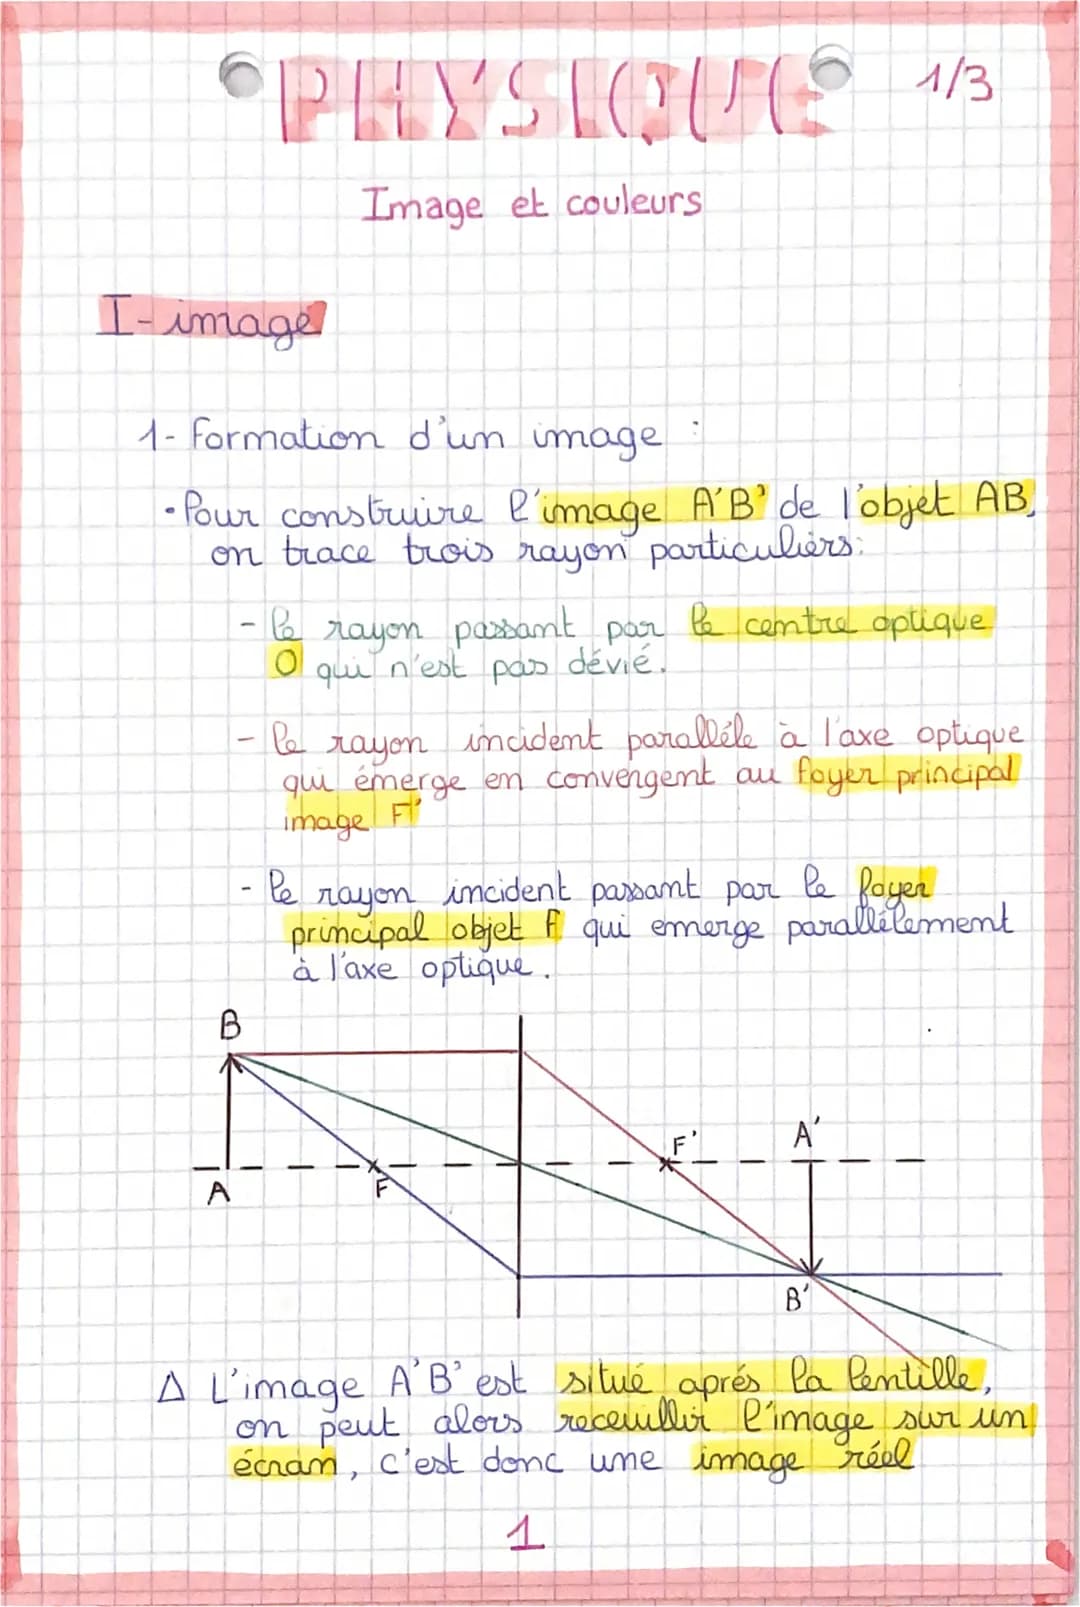 PHYSIQUE 1/3
Image et couleurs
I- image
1- formation d'un image :
• Pour construire l'image A'B' de l'objet AB,
on trace trois rayon particuliers:
- le rayon passant par le centre optique
O qui n'est pas dévié.
- le rayon incident paralléle à l'axe optique
qui émerge en convergent au foyer principal
image F'
- le rayon incident passant par le foyer
principal objet F qui emerge parallélement
à l'axe optique.
B
A'
F'
A
F
B'
Δ L'image A'B' est situé aprés la lentille,
on peut alors receuillir l'image sur un
écran, c'est donc une image réel
1